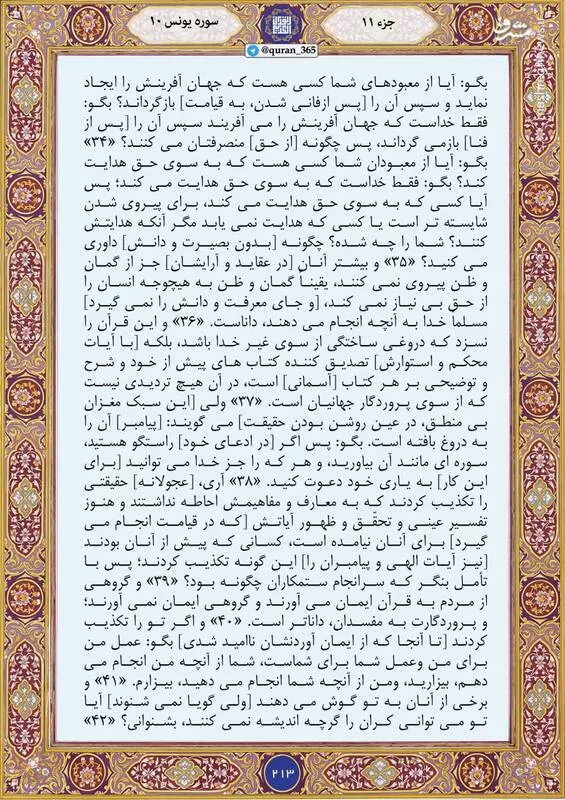 جزء ۱۱
سوره یونس ۱۰
@quran_365
بگو: آیا از معبودهای شما کسی هست که جهان آفرینش را ایجاد
نماید و سپس آن را [پس ازفانی شدن، به قیامت] بازگرداند؟ بگو:
فقط خداست که جهان آفرینش را می آفریند سپس آن را [پس از
فنا] بازمی گرداند، پس چگونه [از حق] منصرفتان می کنند؟ «۳۴»
بگو: آیا از معبودان شما کسی هست که به سوی حق هدایت
کند؟ بگو: فقط خداست که به سوی حق هدایت می کند؛ پس
آیا کسی که به سوی حق هدایت می کند، برای پیروی شدن
شایسته تر است یا کسی که هدایت نمی یابد مگر آنکه هدایتش
کنند؟ شما را چه شده؟ چگونه [بدون بصیرت و دانش] داوری
می کنید؟ «۳۵» و بیشتر آنان [در عقاید و آرایشان] جز از گمان
و ظن پیروی نمی کنند، یقیناً گمان و ظن به هیچوجه انسان را
از حق بی نیاز نمی کند، [و جای معرفت و دانش را نمی گیرد]
مسلماً خدا به آنچه انجام می دهند، داناست. «۳۶» و این قرآن را
نسزد که دروغی ساختگی از سوی غیر خدا باشد، بلکه [با آیات
محکم و استوارش] تصدیق کننده کتاب های پیش از خود و شرح
و توضیحی بر هر کتاب [آسمانی] است، در آن هیچ تردیدی نیست
که از سوی پروردگار جهانیان است. «۳۷» ولی [این سبک مغزان
بی منطق، در عین روشن بودن حقیقت] می گویند: [پیامبر] آن را
به دروغ بافته است. بگو: پس اگر [در ادعای خود] راستگو هستید،
سوره ای مانند آن بیاورید، و هر که را جز خدا می توانید [برای
این کار] به یاری خود دعوت کنید. «۳۸» آری، [عجولانه] حقیقتی
را تکذیب کردند که به معارف و مفاهیمش احاطه نداشتند و هنوز
تفسیر عینی و تحقّق و ظهور آیاتش [که در قیامت انجام می
گیرد] برای آنان نیامده است، کسانی که پیش از آنان بودند
[نیز آیات الهی و پیامبران را] این گونه تکذیب کردند؛ پس با
تأمل بنگر که سرانجام ستمکاران چگونه بود؟ «۳۹» و گروهی
از مردم به قرآن ایمان می آورند و گروهی ایمان نمی آورند؛
و پروردگارت به مفسدان، داناتر است. «۴۰» و اگر تو را تکذیب
کردند [تا آنجا که از ایمان آوردنشان ناامید شدی] بگو: عمل من
برای من وعمل شما برای شماست، شما از آنچه من انجام می
دهم، بیزارید، ومن از آنچه شما انجام می دهید، بیزارم. «۴۱» و
برخی از آنان به تو گوش می دهند [ولی گویا نمی شنوند] آیا
تو می توانی کران را گرچه اندیشه نمی کنند، بشنوانی؟ «۴۲»
۲۱۳